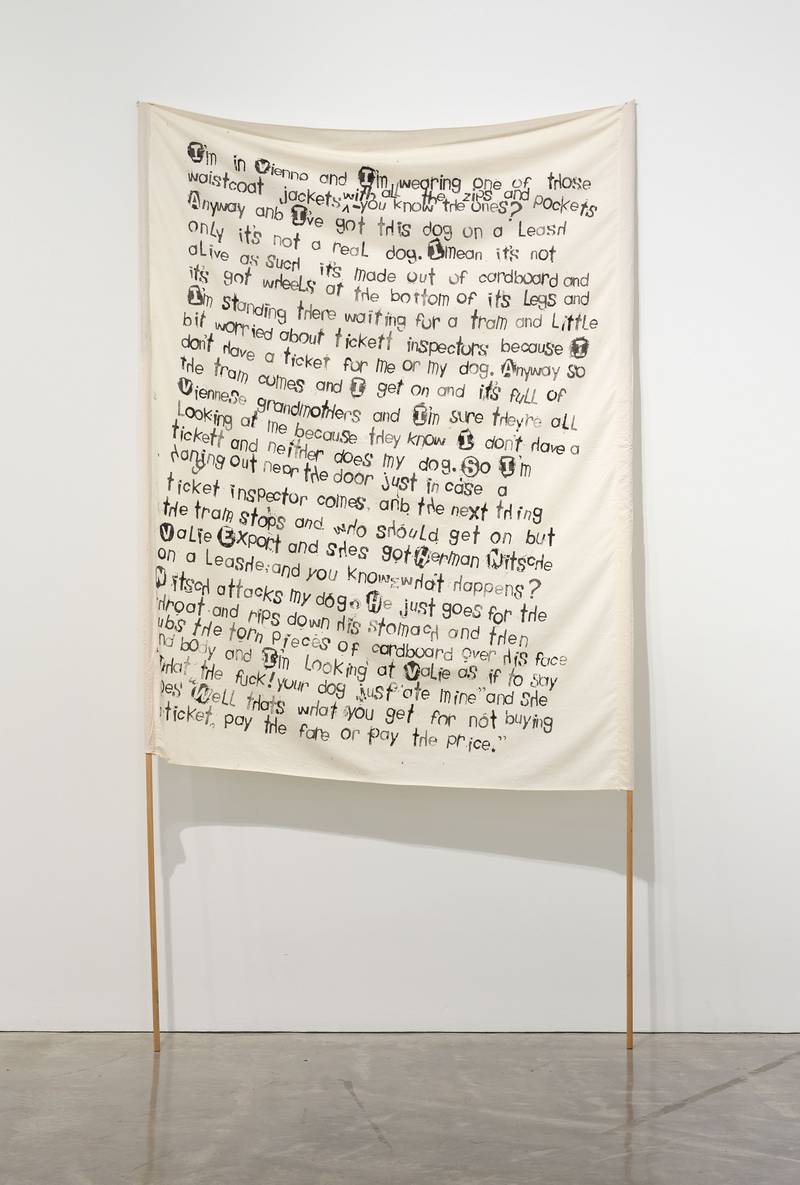 I'm in Vienna and I'm wearing one of those
waistcoat jackets with all the zips and pockets
^-you know the ones?
Anyway anb I've got this dog on a Leash
only it's not a real dog. I mean it's not
aLive as such it's made out of cardboard and
it's got wheeLs at the bottom of it's Legs and
I'm standing there waiting for a tram and Little
bit worried about tickett inspectors because I
don't have a ticket for me or my dog. Anyway so
the tram comes and I get on and it's fuLL of
Viennese grandmothers and I'm sure they're aLL
Looking at me because they know I don't have a
tickett and neither does my dog. So I'm
hanging out near the door just in case a
ticket inspector comes, anb the next thing
the tram stops and who shouLd get on but
VaLie Export and shes got Herman Nitsche
on a Leashe; and you know what happens?
Nitsch attacks my dog. He just goes for the
throat and rips down his stomach and then
ubs the torn pieces of cardboard over his face
nd body and I'm Looking at VaLie as if to say
"what the fuck! your dog just ate mine" and she
oes "WeLL thats what you get for not buying
ticket, pay the fare or pay the price."